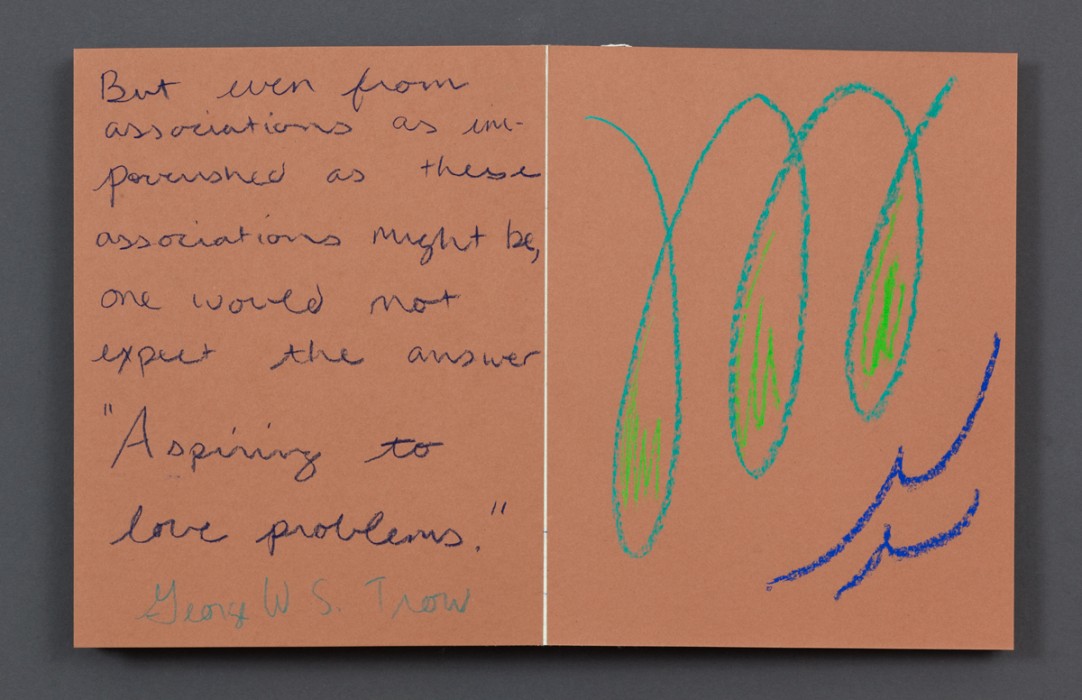 But even from
associations as im-
poverished as these
associations might be,
one would not
expect the answer
"Aspiring to
love problems."
George W S. Trow